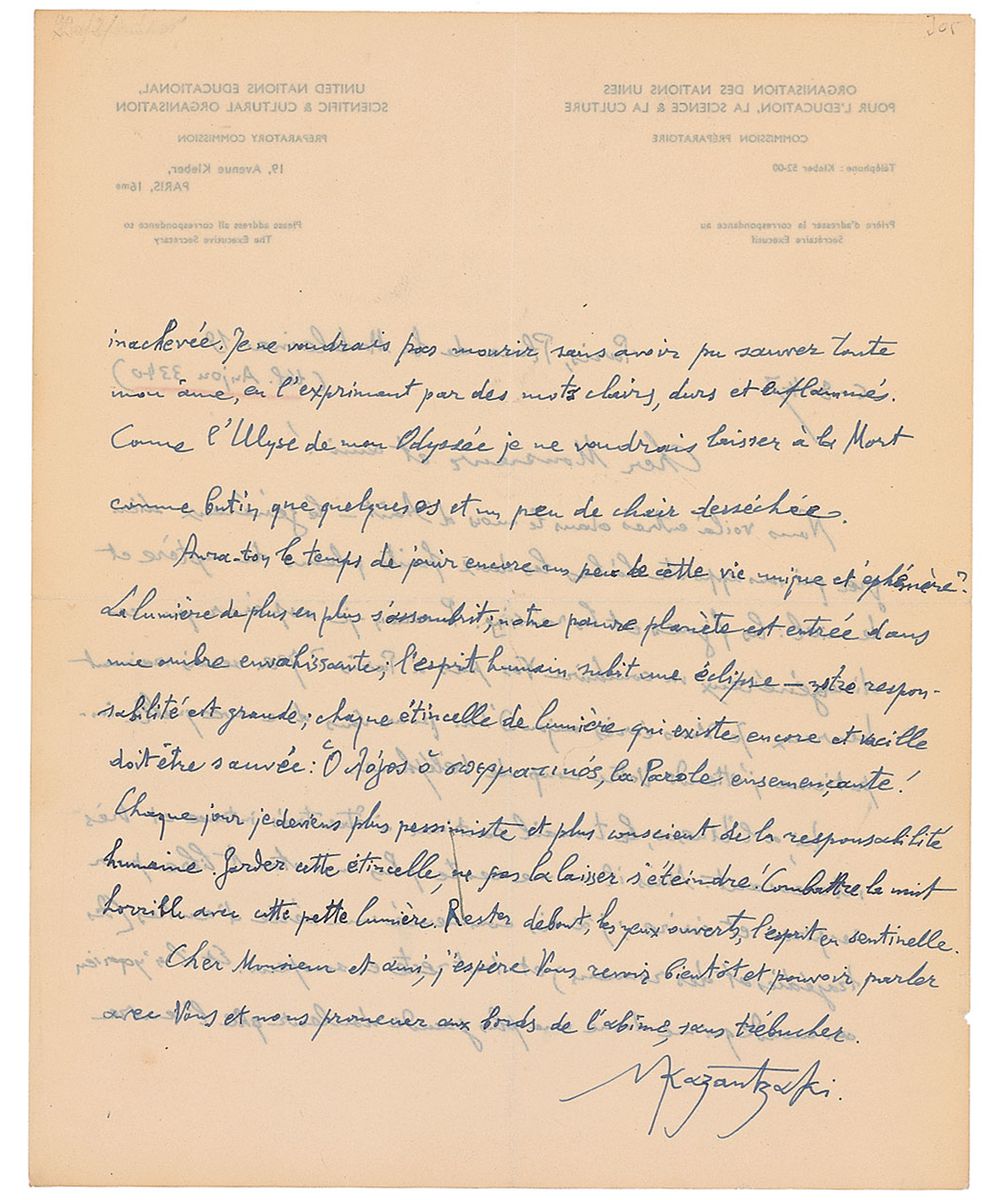 Jor
inachevée. Je ne voudrais pas mourir sans avoir pu sauver toute
mon âme, en l'exprimant par des mots clairs, durs et enflammés.
Comme l'Ulyse de mon Odyssée je ne voudrais laisser à la Mort
comme butin que quelques os et un peu de chair desséchée.
Aura-t-on le temps de jouir encore un peu de cette vie unique et éphémère?
La lumière de plus en plus s'assombrit; notre pauvre planète est entrée dans
une ombre envahissante; l'esprit humain subit une éclipse — notre respon-
sabilité est grande; chaque étincelle de lumière qui existe encore et vacille
doit être sauvée: Ὁ λόγος ὁ σπερματικός, la Parole ensemençante!
Chaque jour je deviens plus pessimiste et plus conscient de la responsabilité
humaine. Garder cette étincelle, ne pas la laisser s'éteindre! Combattre la nuit
horrible avec cette petite lumière. Rester debout, les yeux ouverts, l'esprit en sentinelle.
Cher Monsieur et ami, j'espère Vous revoir bientôt et pouvoir parler
avec Vous et nous promener aux bords de l'abîme, sans trébucher.
NKazantzaki.
ORGANISATION DES NATIONS UNIES
POUR L'EDUCATION, LA SCIENCE & LA CULTURE
COMMISSION PRÉPARATOIRE
Téléphone : Kleber 52-00
Prière d'adresser la correspondance au
Secrétaire Executif
UNITED NATIONS EDUCATIONAL,
SCIENTIFIC & CULTURAL ORGANISATION
PREPARATORY COMMISSION
19, Avenue Kleber,
PARIS, 16me
Please address all correspondence to
The Executive Secretary